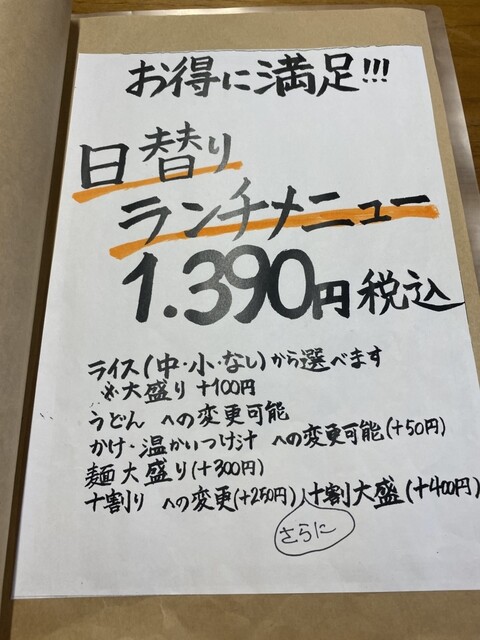 お得に満足!!!
日替り
ランチメニュー
1.390円税込
ライス(中・小・なし)から選べます
※大盛り+100円
うどん への変更可能
かけ・温かいつけ汁 への変更可能(+50円)
麺大盛り(+300円)
十割り への変更(+250円)十割大盛(+400円)
さらに